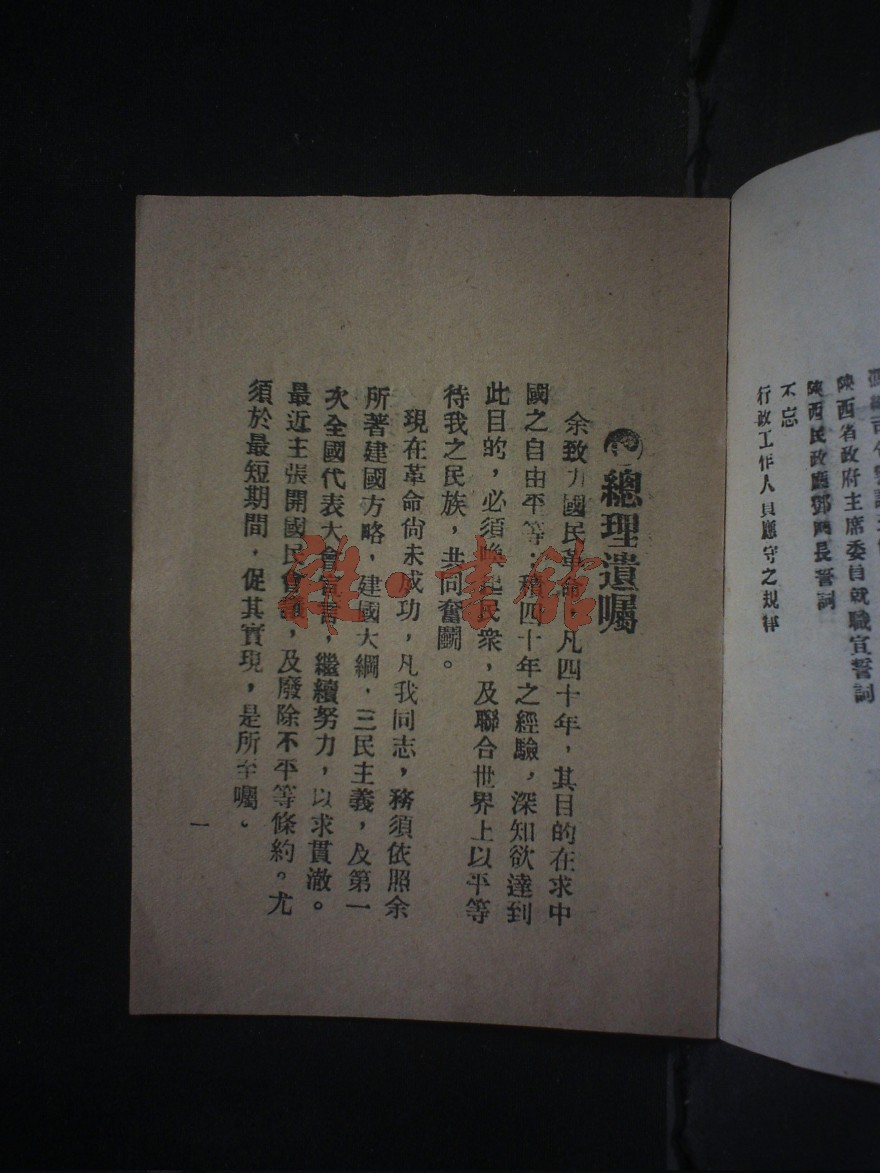 陝西省政府主席委員就職宣誓詞
陝西民政廳鄧廳長誓詞
不忘
行政工作人員應守之規律
總理遺囑
余致力國民革命，凡四十年，其目的在求中
國之自由平等；積四十年之經驗，深知欲達到
此目的，必須喚起民衆，及聯合世界上以平等
待我之民族，共同奮鬭。
現在革命尙未成功，凡我同志，務須依照余
所著建國方略，建國大綱，三民主義，及第一
次全國代表大會宣言，繼續努力，以求貫澈。
最近主張開國民會議，及廢除不平等條約。尤
須於最短期間，促其實現，是所至囑。
一
雜·書館